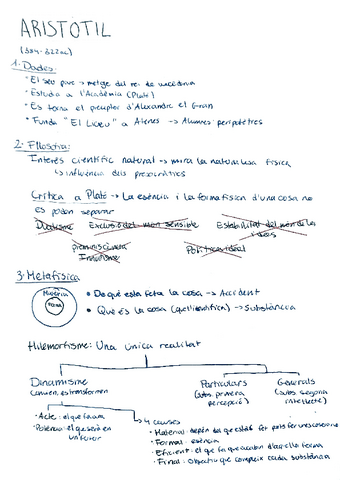 ARISTÒTIL
(384-322aC)
1. Dades:
· El seu pare → metge del rei de macedònia
· Estudia a l'Acadèmia (Plató)
· Es torna el preceptor d'Alexandre el Gran
· Funda "El Liceu" a Atenes → Alumnes: peripatètics
2. Filosofia:
Interés científic natural → mira la naturalesa física
↳ influència dels presocràtics
Crítica a Plató → La esència i la forma física d'una cosa no
es poden separar
Dualisme Exclusió del món sensible Estabilitat del món de la idees
Innatisme
Política ideal
3. Metafísica
Matèria
FORMA
• De què esta feta la cosa → Accident
• Què és la cosa (que l'identifica) → Substància
Hilemorfisme: Una única realitat
Dinamisme
canvien, es transformen
· Acte: el que fa ara
· Potència: el que serà en
un futur
Particulars
(subs. primera
percepció)
Generals
(subs segona
intel·lecte)
4 causes
· Material:
· Formal: esència
· Eficient: el que fa que
· Final: objectiu que compleix cada substància